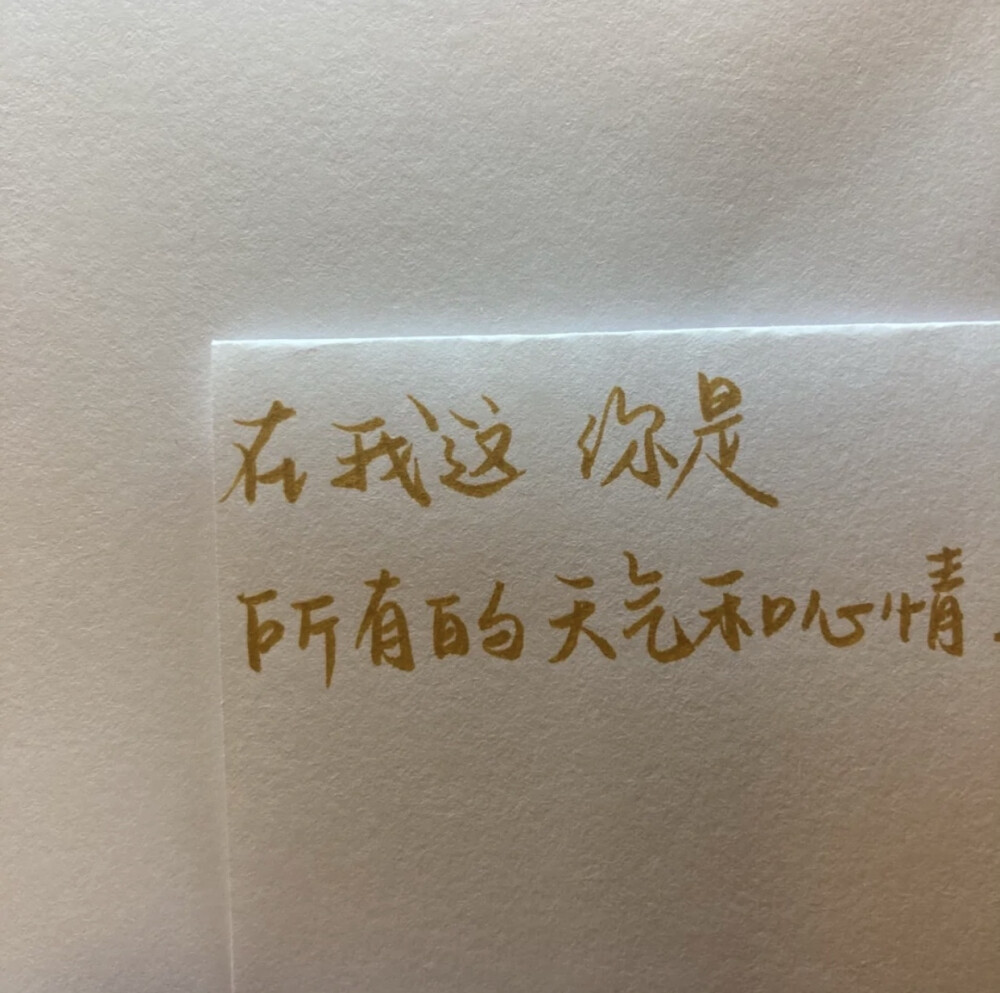 在我这 你是
所有的天气和心情.